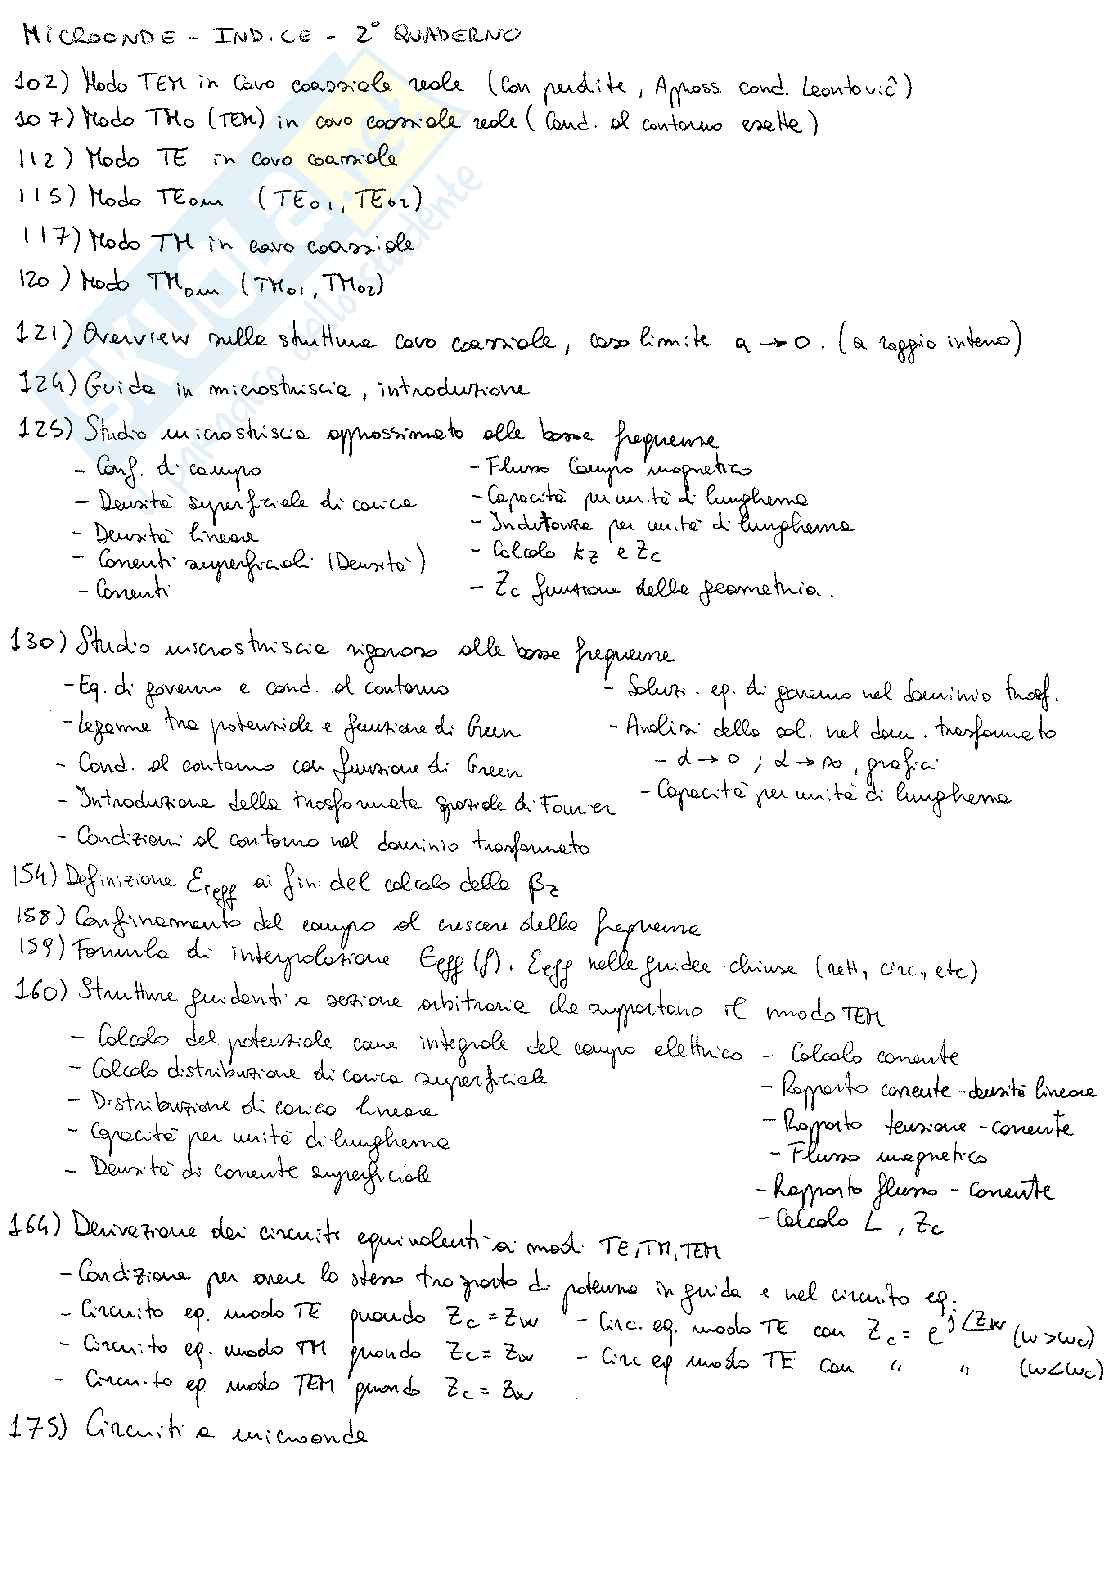 MICROONDE - INDICE - 2° QUADERNO
102) Modo TEM in Cavo coassiale reale (Con perdite, Appross. cond. Leontovič)
107) Modo TM0 (TEM) in cavo coassiale reale (Cond. al contorno esatte)
112) Modo TE in cavo coassiale
115) Modo TE0m (TE01, TE02)
117) Modo TM in cavo coassiale
120) Modo TM0m (TM01, TM02)
121) Overview sulla struttura cavo coassiale, caso limite a → 0. (a raggio interno)
124) Guida in microstriscia, introduzione
125) Studio microstriscia approssimato alle basse frequenze
- Conf. di campo
- Densità superficiale di carica
- Densità lineare
- Correnti superficiali (Densità)
- Correnti
- Flusso Campo magnetico
- Capacità per unità di lunghezza
- Induttanza per unità di lunghezza
- Calcolo kz e Zc
- Zc funzione della geometria.
130) Studio microstriscia rigoroso alle basse frequenze
- Eq. di governo e cond. al contorno
- Legame tra potenziale e funzione di Green
- Cond. al contorno con funzione di Green
- Introduzione della trasformata spaziale di Fourier
- Condizioni al contorno nel dominio trasformato
- Soluz. eq. di governo nel dominio trasf.
- Analisi della sol. nel dom. trasformato
- α → 0 ; α → ∞, grafici
- Capacità per unità di lunghezza
154) Definizione Ereff ai fini del calcolo della βz
158) Confinamento del campo al crescere della frequenza
159) Formula di interpolazione Eeff (f). Eeff nelle guide chiuse (rett, circ, etc)
160) Strutture guidanti a sezione arbitraria che supportano il modo TEM
- Calcolo del potenziale come integrale del campo elettrico
- Calcolo distribuzione di carica superficiale
- Distribuzione di carica lineare
- Capacità per unità di lunghezza
- Densità di corrente superficiale
- Calcolo corrente
- Rapporto corrente - densità lineare
- Rapporto tensione - corrente
- Flusso magnetico
- Rapporto flusso - corrente
- Calcolo L, Zc
164) Derivazione dei circuiti equivalenti ai modi TE, TM, TEM
- Condizione per avere lo stesso trasporto di potenza in guida e nel circuito eq.
- Circuito eq. modo TE quando Zc = Zw
- Circuito eq. modo TM quando Zc = Zw
- Circuito eq modo TEM quando Zc = Zw
- Circ. eq. modo TE con Zc = e^j∠Zw (w>wc)
- Circ eq modo TE con " " (w<wc)
175) Circuiti a microonde